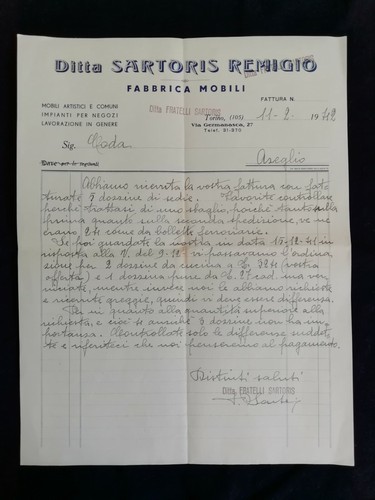 Ditta SARTORIS REMIGIO
FABBRICA MOBILI
MOBILI ARTISTICI E COMUNI
IMPIANTI PER NEGOZI
LAVORAZIONE IN GENERE
Ditta FRATELLI SARTORIS
FATTURA N.
Torino, (105) 11-2-1942
Via Germanasca, 37
Telef. 31-870
Sig. Coda
Aseglio
Abbiamo ricevuta la vostra fattura con fat-
turate 5 dozzine di sedie. Favorite controllare
perchè trattasi di uno sbaglio, poichè tanto sulla
prima quanto sulla seconda spedizione, ve ne
erano 24 come da bollette ferroviarie.
Se poi guardate la nostra in data 15-12-41 in
risposta alla V. del 9-12 vi passavamo l'ordina-
zione per 2 dozzine da cucina a L. 324 (vostra
offerta) e 2 dozzine pure da L. 27 cad. ma ver-
niciate, mentre invece noi le abbiamo richieste
e ricevute greggie, quindi vi deve essere differenza.
Per in quanto alla quantità superiore alla
richiesta, e cioè se anzichè 5 dozzine non ha im-
portanza. Controllate solo le differenze suddet-
te e riferiteci che noi penseremo al pagamento.
Distinti saluti
Ditta FRATELLI SARTORIS